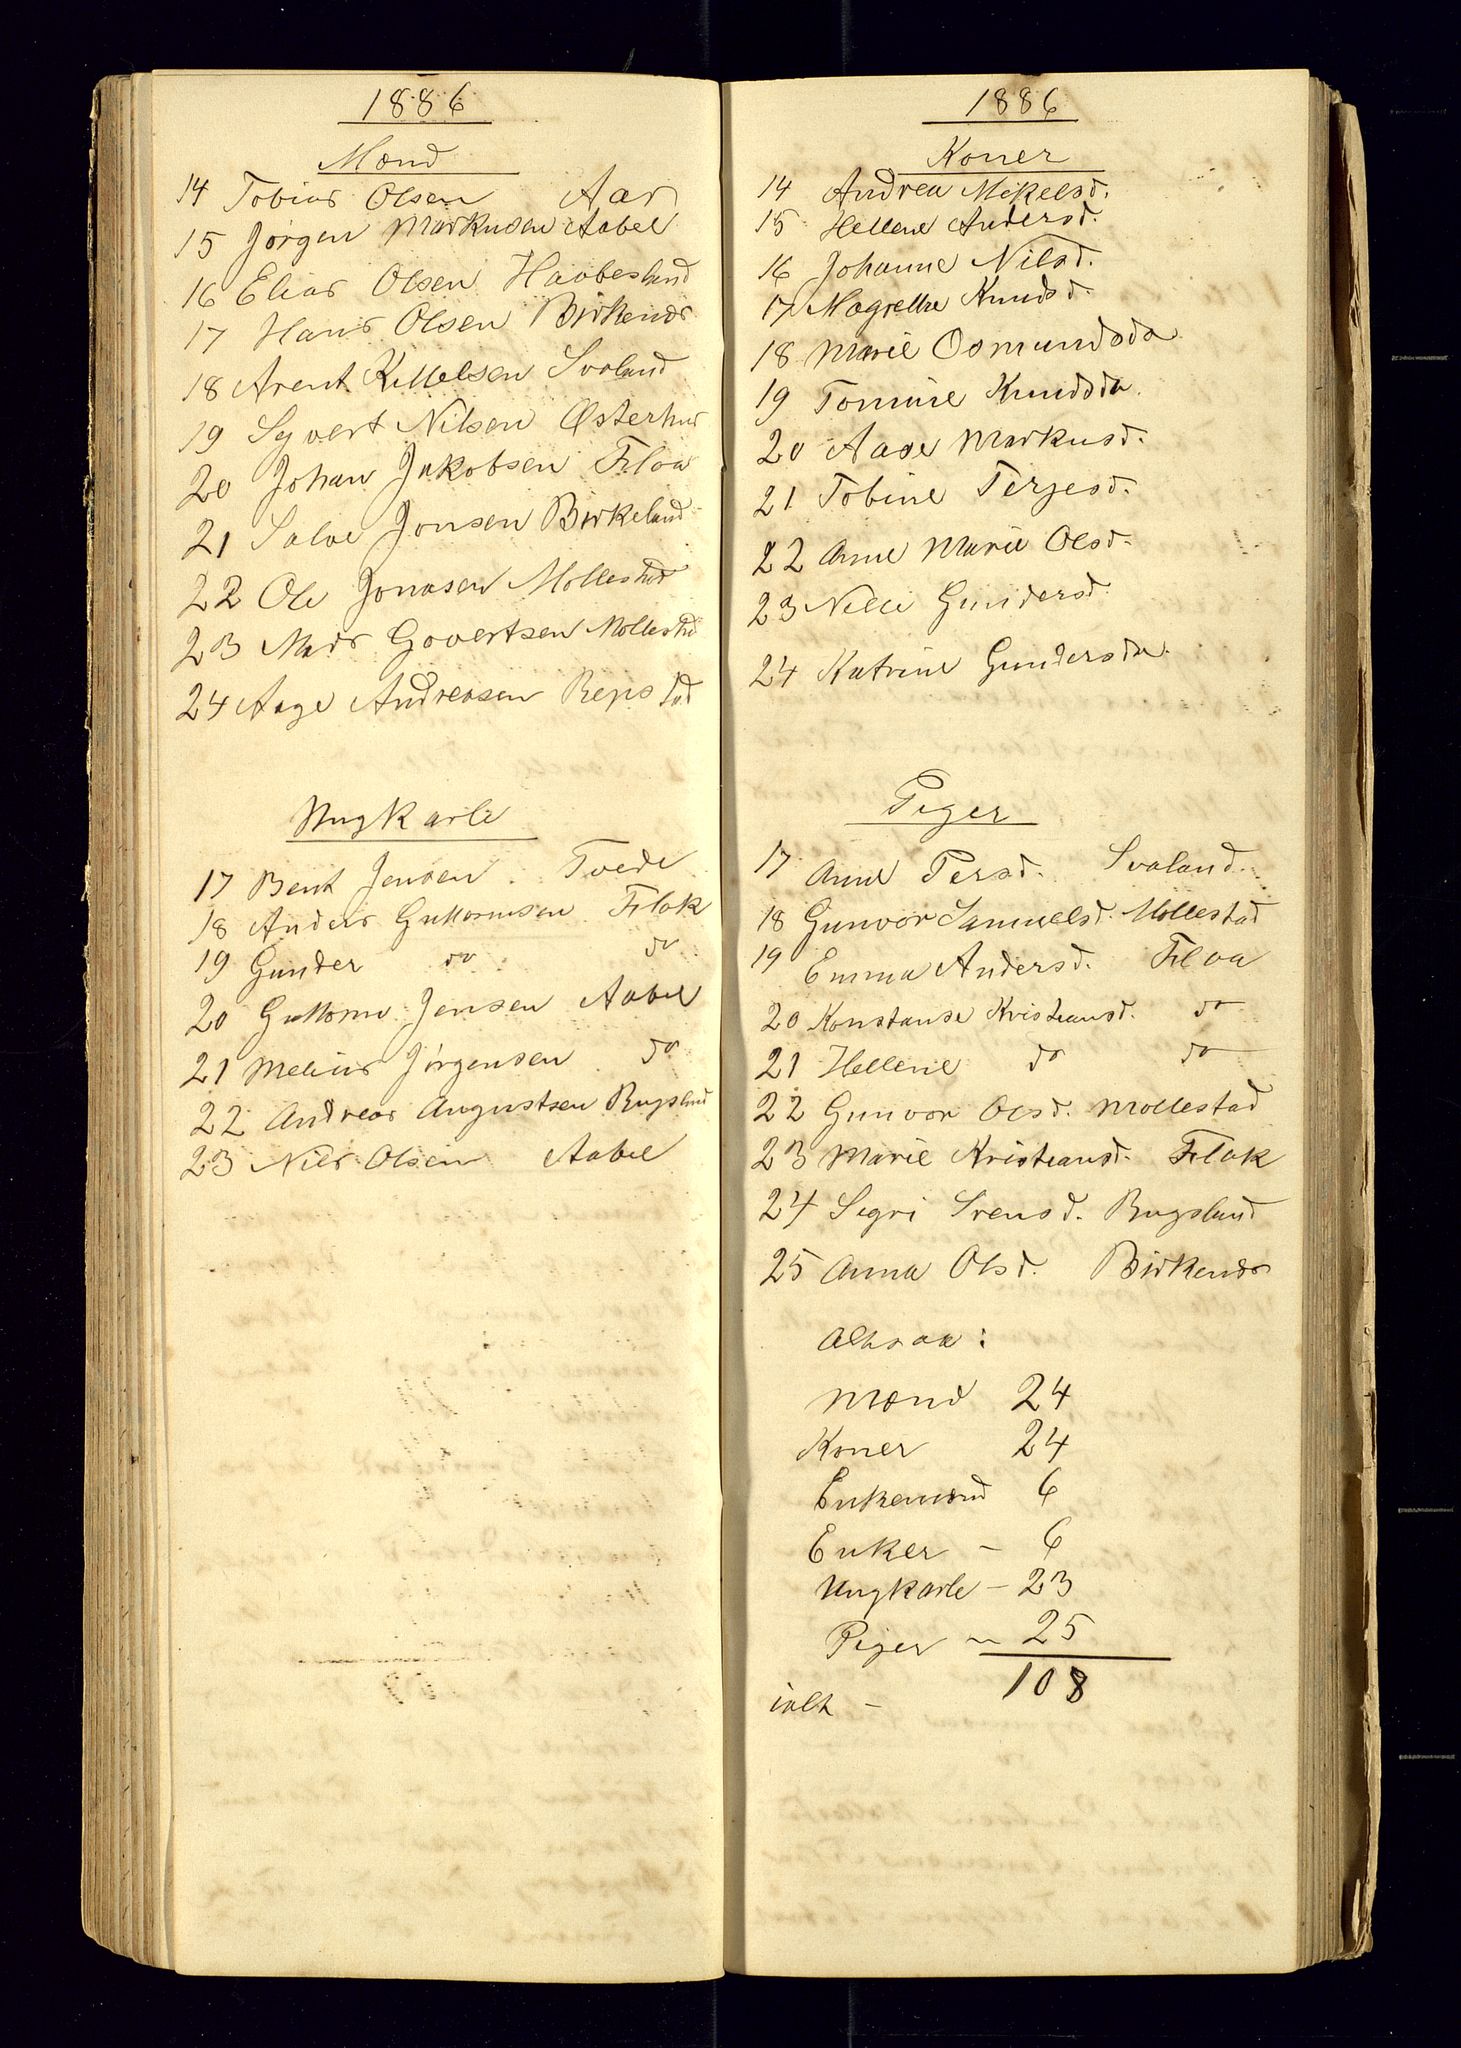 1886
Mænd
14 Tobias Olsen Aas
15 Jørgen Markusen Aabel
16 Elias Olsen Haabesland
17 Hans Olsen Birkenes
18 Arent Kittelsen Svaland
19 Syvert Nilsen Østerhus
20 Johan Jakobsen Flaa
21 Salve Jonsen Birkeland
22 Ole Jonasen Mollestad
23 Mads Govertsen Mollestad
24 Aage Andreasen Repstad
Ungkarle
17 Bent Jensen Tvede
18 Anders Guttormsen Flak
19 Gunder do do
20 Guttorm Jensen Aabel
21 Melius Jørgensen do
22 Andreas Augustsen Rugsland
23 Nils Olsen Aabel
1886
Koner
14 Andrea Mikelsd.
15 Hellene Andersd.
16 Johanne Nilsd.
17 Magrethe Knudsd.
18 Marie Osmundsda
19 Tomine Knudsda.
20 Aase Markusd.
21 Tobine Terjesd.
22 Anne Marie Olsd.
23 Nelle Gundersd.
24 Katrine Gundersda.
Piger
17 Anne Persd. Svaland.
18 Gunvor Samuelsd. Mollestad
19 Emma Andersd. Flaa
20 Konstanse Kristiansd. do
21 Hellene do do
22 Gunvor Olsd. Mollestad
23 Marie Kristiansd. Flak
24 Segri Svensd. Rugsland
25 Anna Olsd. Birkenes
Altsaa:
Mænd 24
Koner 24
Enkemænd 6
Enker - 6
Ungkarle - 23
Piger - 25
ialt - 108